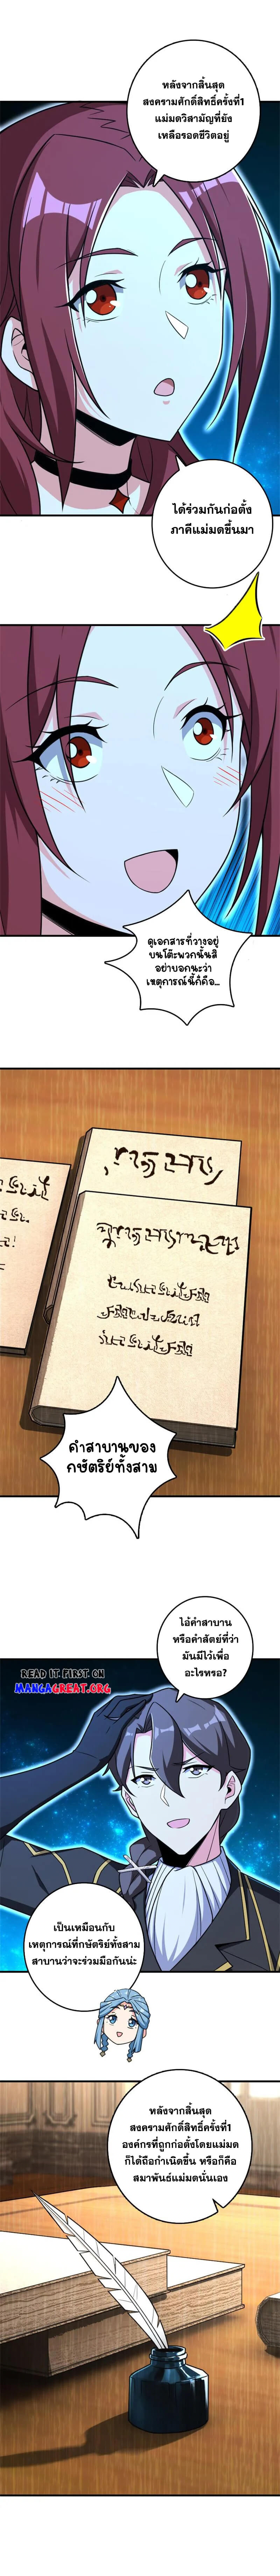 หลังจากสิ้นสุด
สงครามศักดิ์สิทธิ์ครั้งที่1
แม่มดวิสามัญที่ยัง
เหลือรอดชีวิตอยู่
ได้ร่วมกันก่อตั้ง
ภาคีแม่มดขึ้นมา
ดูเอกสารที่วางอยู่
บนโต๊ะพวกนั้นสิ
อย่าบอกนะว่า
เหตุการณ์นี้ก็คือ...
คำสาบานของ
กษัตริย์ทั้งสาม
ไอ้คำสาบาน
หรือคำสัตย์ที่ว่า
มันมีไว้เพื่อ
อะไรหรอ?
READ IT FIRST ON
MANGAGREAT.ORG
เป็นเหมือนกับ
เหตุการณ์ที่กษัตริย์ทั้งสาม
สาบานว่าจะร่วมมือกันน่ะ
หลังจากสิ้นสุด
สงครามศักดิ์สิทธิ์ครั้งที่1
องค์กรที่ถูกก่อตั้งโดยแม่มด
ก็ได้ถือกำเนิดขึ้น หรือก็คือ
สมาพันธ์แม่มดนั่นเอง